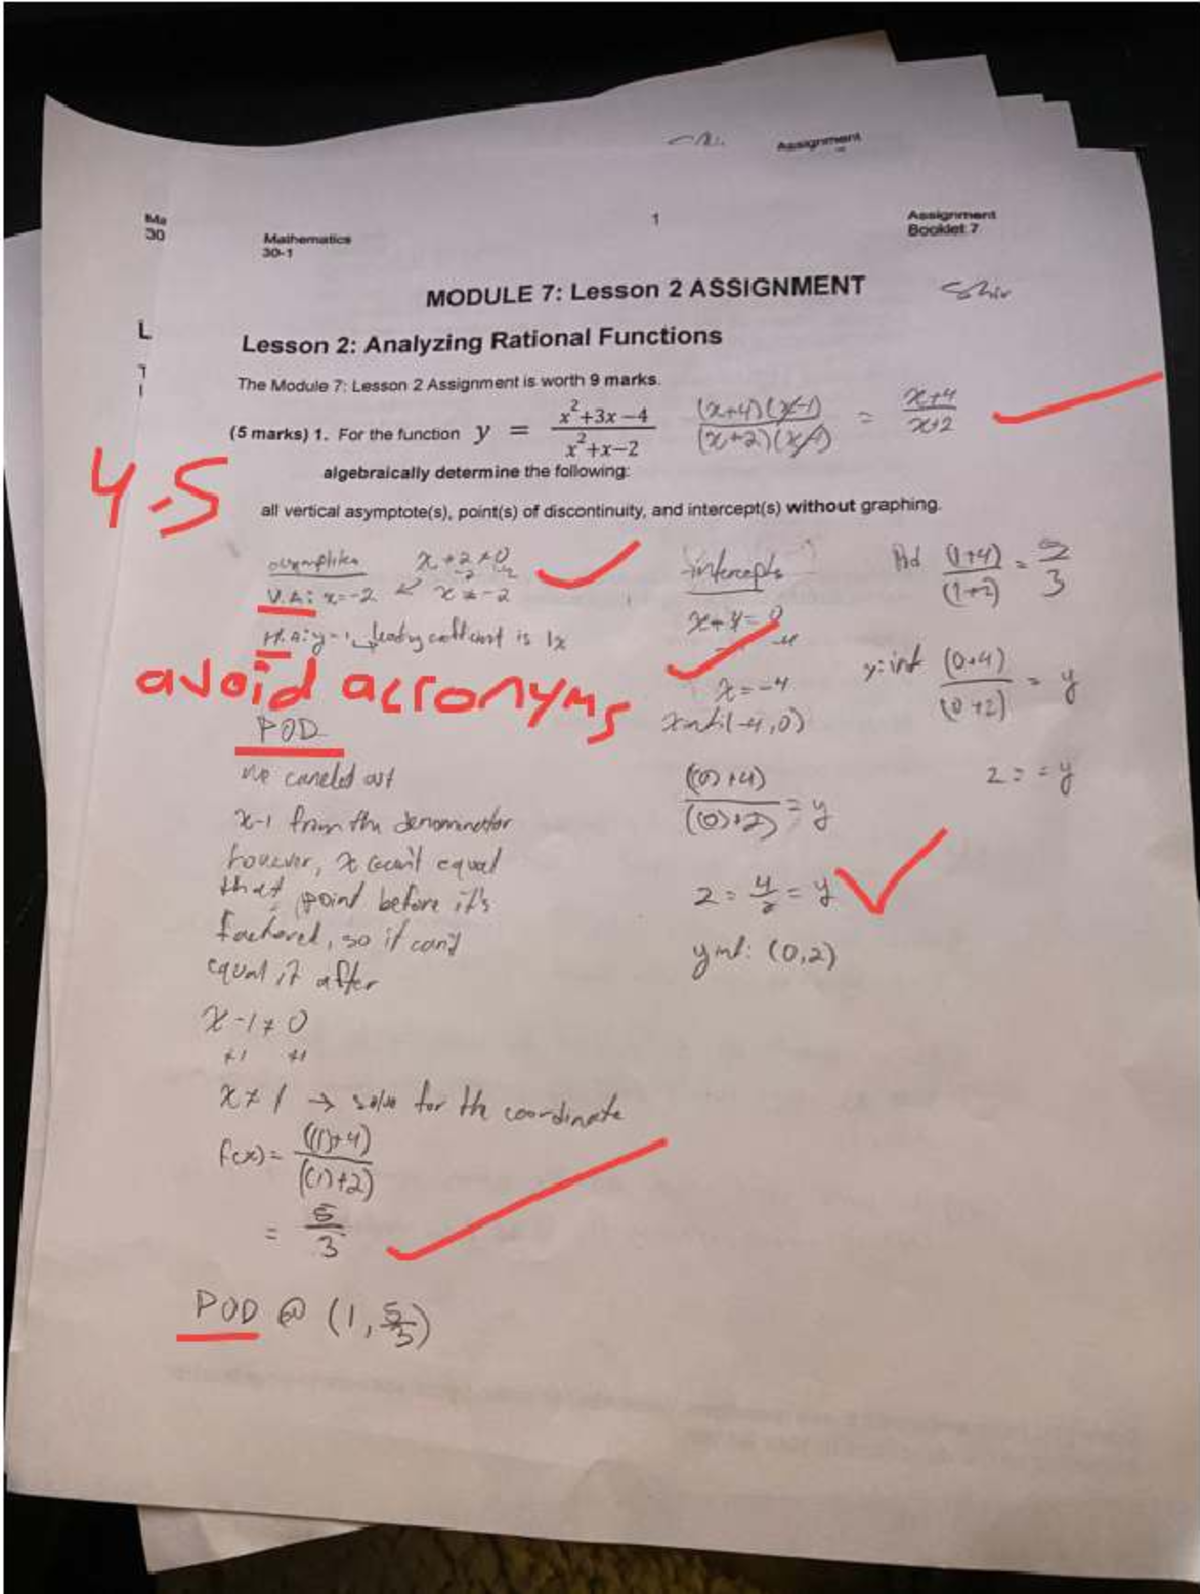 Assignment
Ma
30
Mathematics
30-1
1
Assignment
Booklet 7
MODULE 7: Lesson 2 ASSIGNMENT
Shiv
L
Lesson 2: Analyzing Rational Functions
The Module 7: Lesson 2 Assignment is worth 9 marks.
(5 marks) 1. For the function y = (x²+3x−4)/(x²+x−2) ((x+4)(x-1))/((x+2)(x-1)) = (x+4)/(x+2)
algebraically determine the following:
4.5
all vertical asymptote(s), point(s) of discontinuity, and intercept(s) without graphing.
x+2≠0
-2 -2
V.A: x=-2 ↙ x≠-2
H.A: y=1 → is 1x
avoid acronyms
POD
we canceled out
x-1 from the denominator
however, x can't equal
that point before it's
factored, so it can't
equal it after
x-1≠0
+1 +1
x≠1 → solve for the coordinate
f(x)= ((1)+4)/((1)+2)
= 5/3
POD @ (1, 5/3)
intercepts
x+4=0
-4
x=-4
xinti(-4,0)
((0)+4)/((0)+2) = y
2 = 4/2 = y
yint: (0,2)
(1+4)/(1+2) = 5/3
y:int (0+4)/(0+2) = y
2 = = y